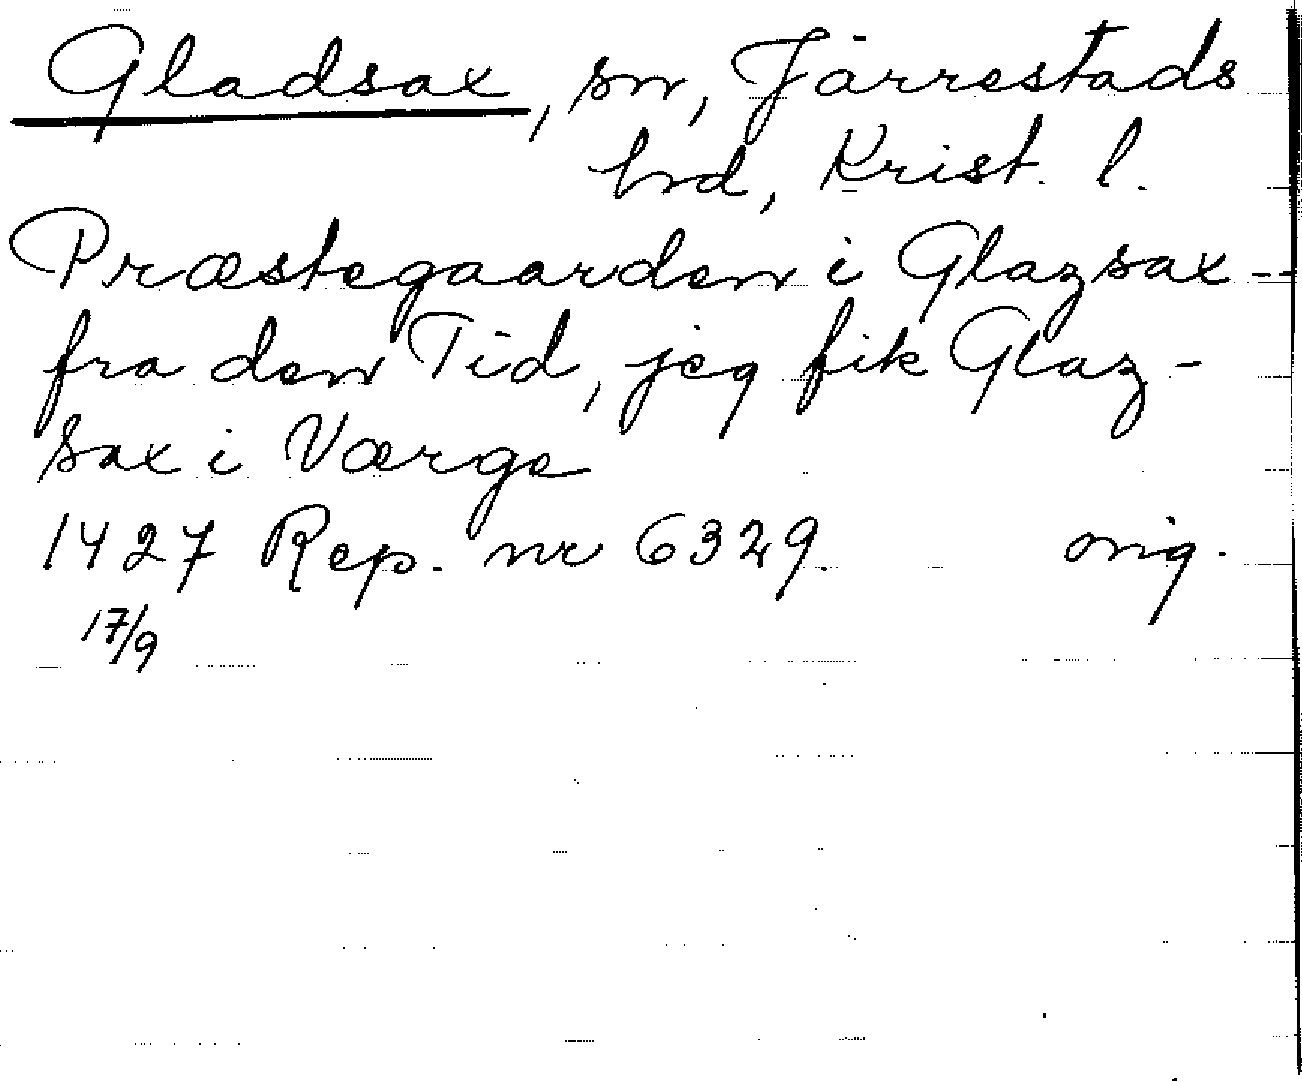 Gladsax, sn, Järrestads
hd, Krist. l.
Præstegaarden i Glazsax --
fra den Tid, jeg fik Glaz-
sax i Værge
1427 Rep. nr 6329. orig.
17/9